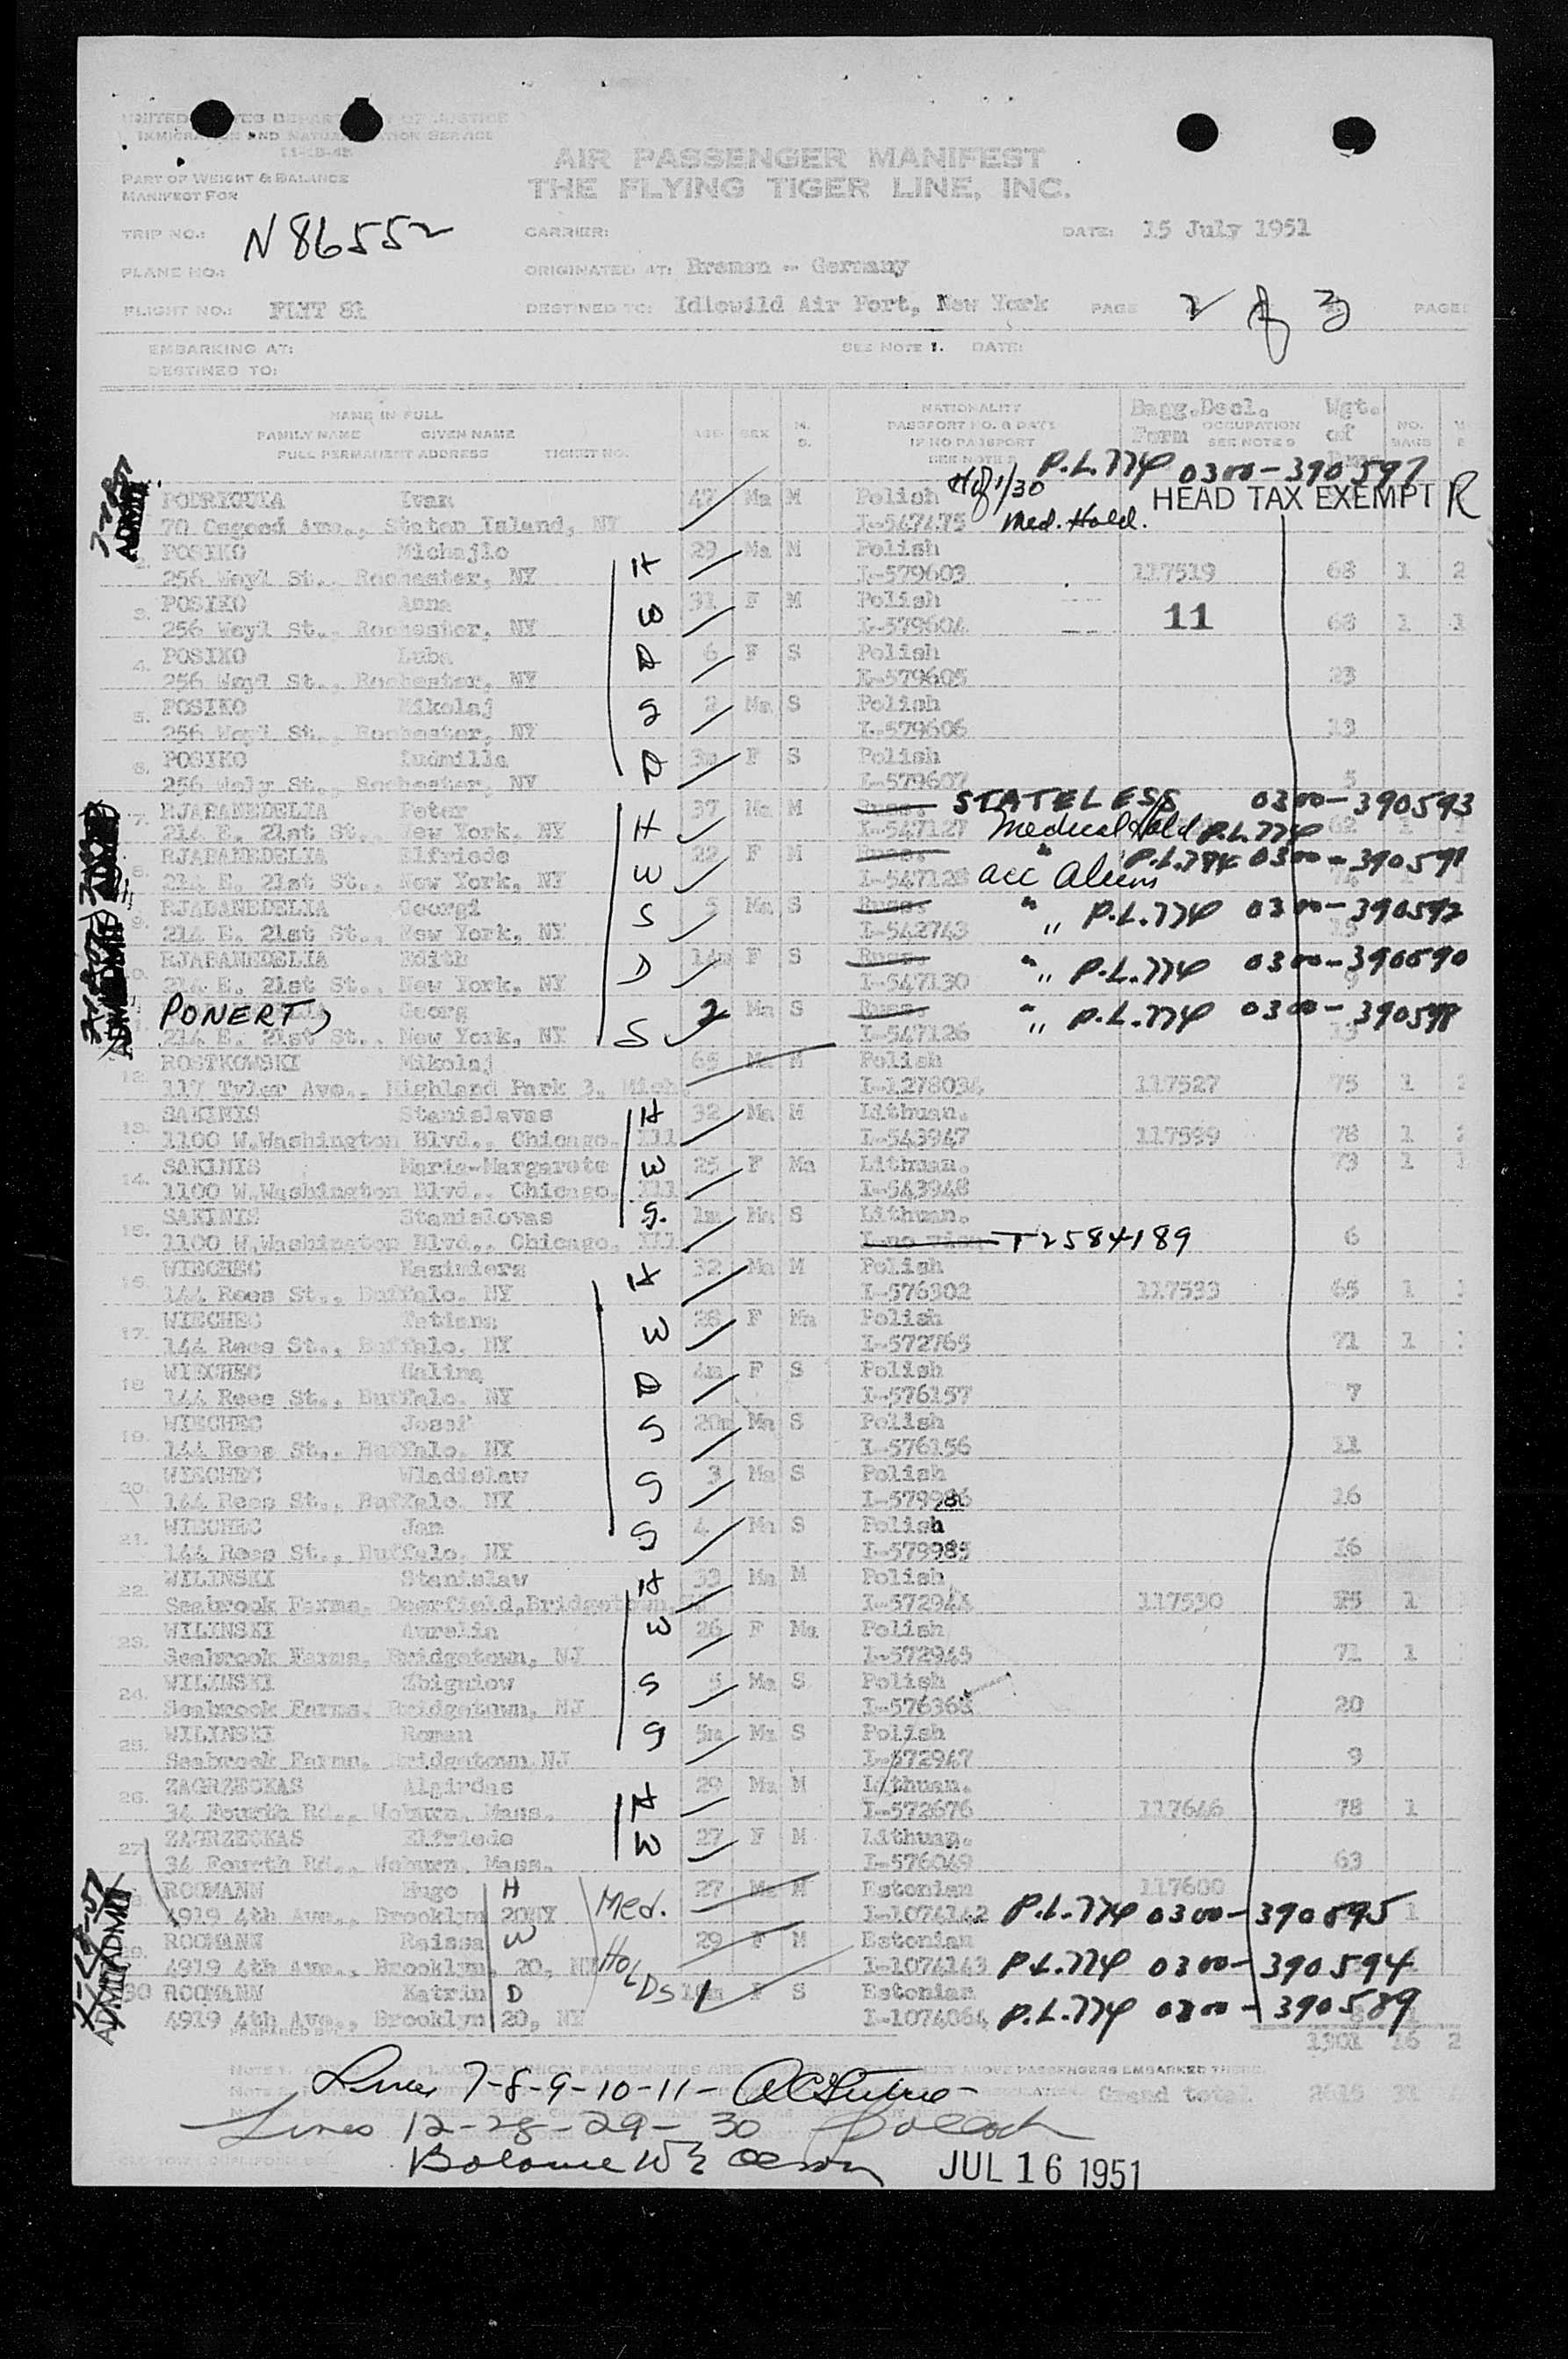 UNITED STATES DEPARTMENT OF JUSTICE
IMMIGRATION AND NATURALIZATION SERVICE
11-18-48
PART OF WEIGHT & BALANCE
MANIFEST FOR
AIR PASSENGER MANIFEST
THE FLYING TIGER LINE, INC.
TRIP NO.: N86552 CARRIER: DATE: 15 July 1951
PLANE NO.: ORIGINATED AT: Bremen - Germany
FLIGHT NO.: FLYT 81 DESTINED TO: Idlewild Air Port, New York PAGE 2 of 3 PAGES
EMBARKING AT: SEE NOTE 1. DATE:
DESTINED TO:
NAME IN FULL
FAMILY NAME GIVEN NAME
FULL PERMANENT ADDRESS TICKET NO.
AGE SEX M. S.
NATIONALITY
PASSPORT NO. & DATE
IF NO PASSPORT
SEE NOTE 2
Bagg.Decl. Form OCCUPATION SEE NOTE 9 Wgt. of NO. BAGS
P.L.774 0300-390597
7-28-51 ADMIT PODRIGULA Ivan 47 Ma M Polish Hof 1/30 HEAD TAX EXEMPT R
70 Osgood Ave., Staten Island, NY I-547475 Med. Hold.
2. POSIKO Michajlo H 29 Ma M Polish
256 Weyl St., Rochester, NY I-579603 117519 68 1 2
3. POSIKO Anna W 31 F M Polish
256 Weyl St., Rochester, NY I-579604 11 68 1 1
4. POSIKO Luba D 6 F S Polish
256 Weyl St., Rochester, NY I-579605 23
5. POSIKO Mikolaj S 2 Ma S Polish
256 Weyl St., Rochester, NY I-579606 13
6. POSIKO Ludmilla D 3m F S Polish
256 Wely St., Rochester, NY I-579607 5
7. RJABANEDELIA Peter H 37 Ma M Russ. STATELESS 0300-390593
214 E. 21st St., New York, NY I-547127 Medical Hold P.L.774 62
8. RJABANEDELIA Elfriede W 22 F M Russ. " P.L.774 0300-390591
214 E. 21st St., New York, NY I-547128 acc Aliens
9. RJABANEDELIA Georgi S 5 Ma S Russ. " " P.L.774 0300-390592
214 E. 21st St., New York, NY I-542743 15
10. RJABANEDELIA Edith D 14m F S Russ. " " P.L.774 0300-390590
214 E. 21st St., New York, NY I-547130 9
PONERT, Georg S 2 Ma S Russ. " " P.L.774 0300-390598
214 E. 21st St., New York, NY I-547126
12. ROSTKOWSKI Mikolaj 65 Ma M Polish
117 Tyler Ave., Highland Park 3, Mich I-1278034 117527 75 1 2
13. SAKINIS Stanislavas H 32 Ma M Lithuan.
1100 W.Washington Blvd., Chicago, Ill I-543947 117599 78 1 2
14. SAKINIS Maria-Margarete W 25 F Ma Lithuan. 73 1
1100 W.Washington Blvd., Chicago, Ill I-543948
15. SAKINIS Stanislovas S. 1m Ma S Lithuan.
1100 W.Washington Blvd., Chicago, Ill T2584189 6
16. WIECHEC Kazimierz H 32 Ma M Polish
144 Rees St., Buffalo, NY I-576302 117533 65 1
17. WIECHEC Tatiana W 28 F Ma Polish
144 Rees St., Buffalo, NY I-572765 71 1
18. WIECHEC Halina D 4m F S Polish
144 Rees St., Buffalo, NY I-576157 7
19. WIECHEC Josef S 20m Ma S Polish
144 Rees St., Buffalo, NY I-576156 11
20. WIECHEC Wladislaw S 3 Ma S Polish
144 Rees St., Buffalo, NY I-579986 16
21. WIECHEC Jan S 4 Ma S Polish
144 Rees St., Buffalo, NY I-579985 16
22. WILINSKI Stanislaw H 33 Ma M Polish
Seabrook Farms, Deerfield,Bridgetown, I-572944 117530 1
23. WILINSKI Aurelia W 26 F Ma Polish
Seabrook Farms, Bridgetown, NJ I-572945 71 1
24. WILINSKI Zbigniew S 5 Ma S Polish
Seabrook Farms, Bridgetown, NJ I-576368 20
25. WILINSKI Roman S 5m Ma S Polish
Seabrook Farms, Bridgetown,NJ I-572947 9
26. ZAGRZECKAS Algirdas H 29 Ma M Lithuan.
34 Fourth Rd., Woburn, Mass. I-572676 117646 78 1
27. ZAGRZECKAS Elfriede W 27 F M Lithuan.
34 Fourth Rd., Woburn, Mass. I-576049 63
ROOMANN Hugo H Med. 27 Ma M Estonian 117600
4919 4th Ave., Brooklyn 20NY I-1074142 P.L.774 0300-390595 1
29. ROOMANN Raissa W HoLDs 29 F M Estonian
4919 4th Ave., Brooklyn, 20, NY I-1074143 P.L.774 0300-390594
30 ROOMANN Katrin D 1 10m F S Estonian
4919 4th Ave., Brooklyn 20, NY I-1074064 P.L.774 0300-390589
1301 16 2
Grand total 2615 31
Lines 7-8-9-10-11-
Lines 12-28-29-30
Balance
JUL 16 1951